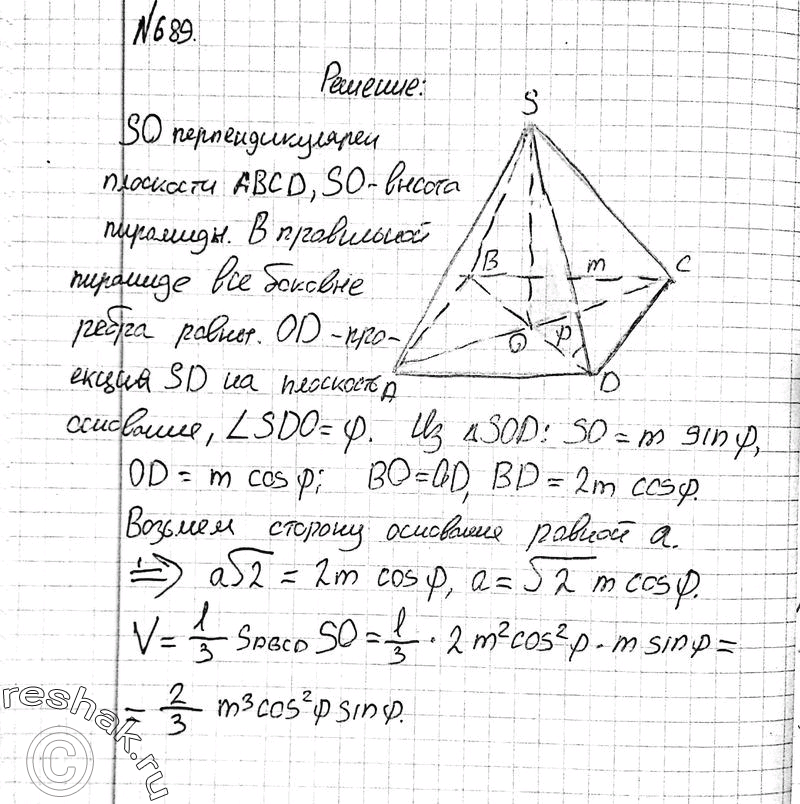 №689.
Решение:
SO перпендикулярен
плоскости ABCD, SO-высота
пирамиды. В правильной
пирамиде все боковые
ребра равны. OD-про-
екция SD на плоскость
основание, ∠SDO=φ. Из ΔSOD: SO=m sinφ,
OD = m cosφ; BO=OD, BD=2m cosφ.
Возьмем сторону основание равной a.
⇒ a√2 = 2m cosφ, a=√2 m cosφ.
V = 1/3 SABCD SO = 1/3 · 2m²cos²φ · m sinφ =
= 2/3 m³cos²φ sinφ.
S
B
m
C
O
φ
A
D
reshak.ru
©